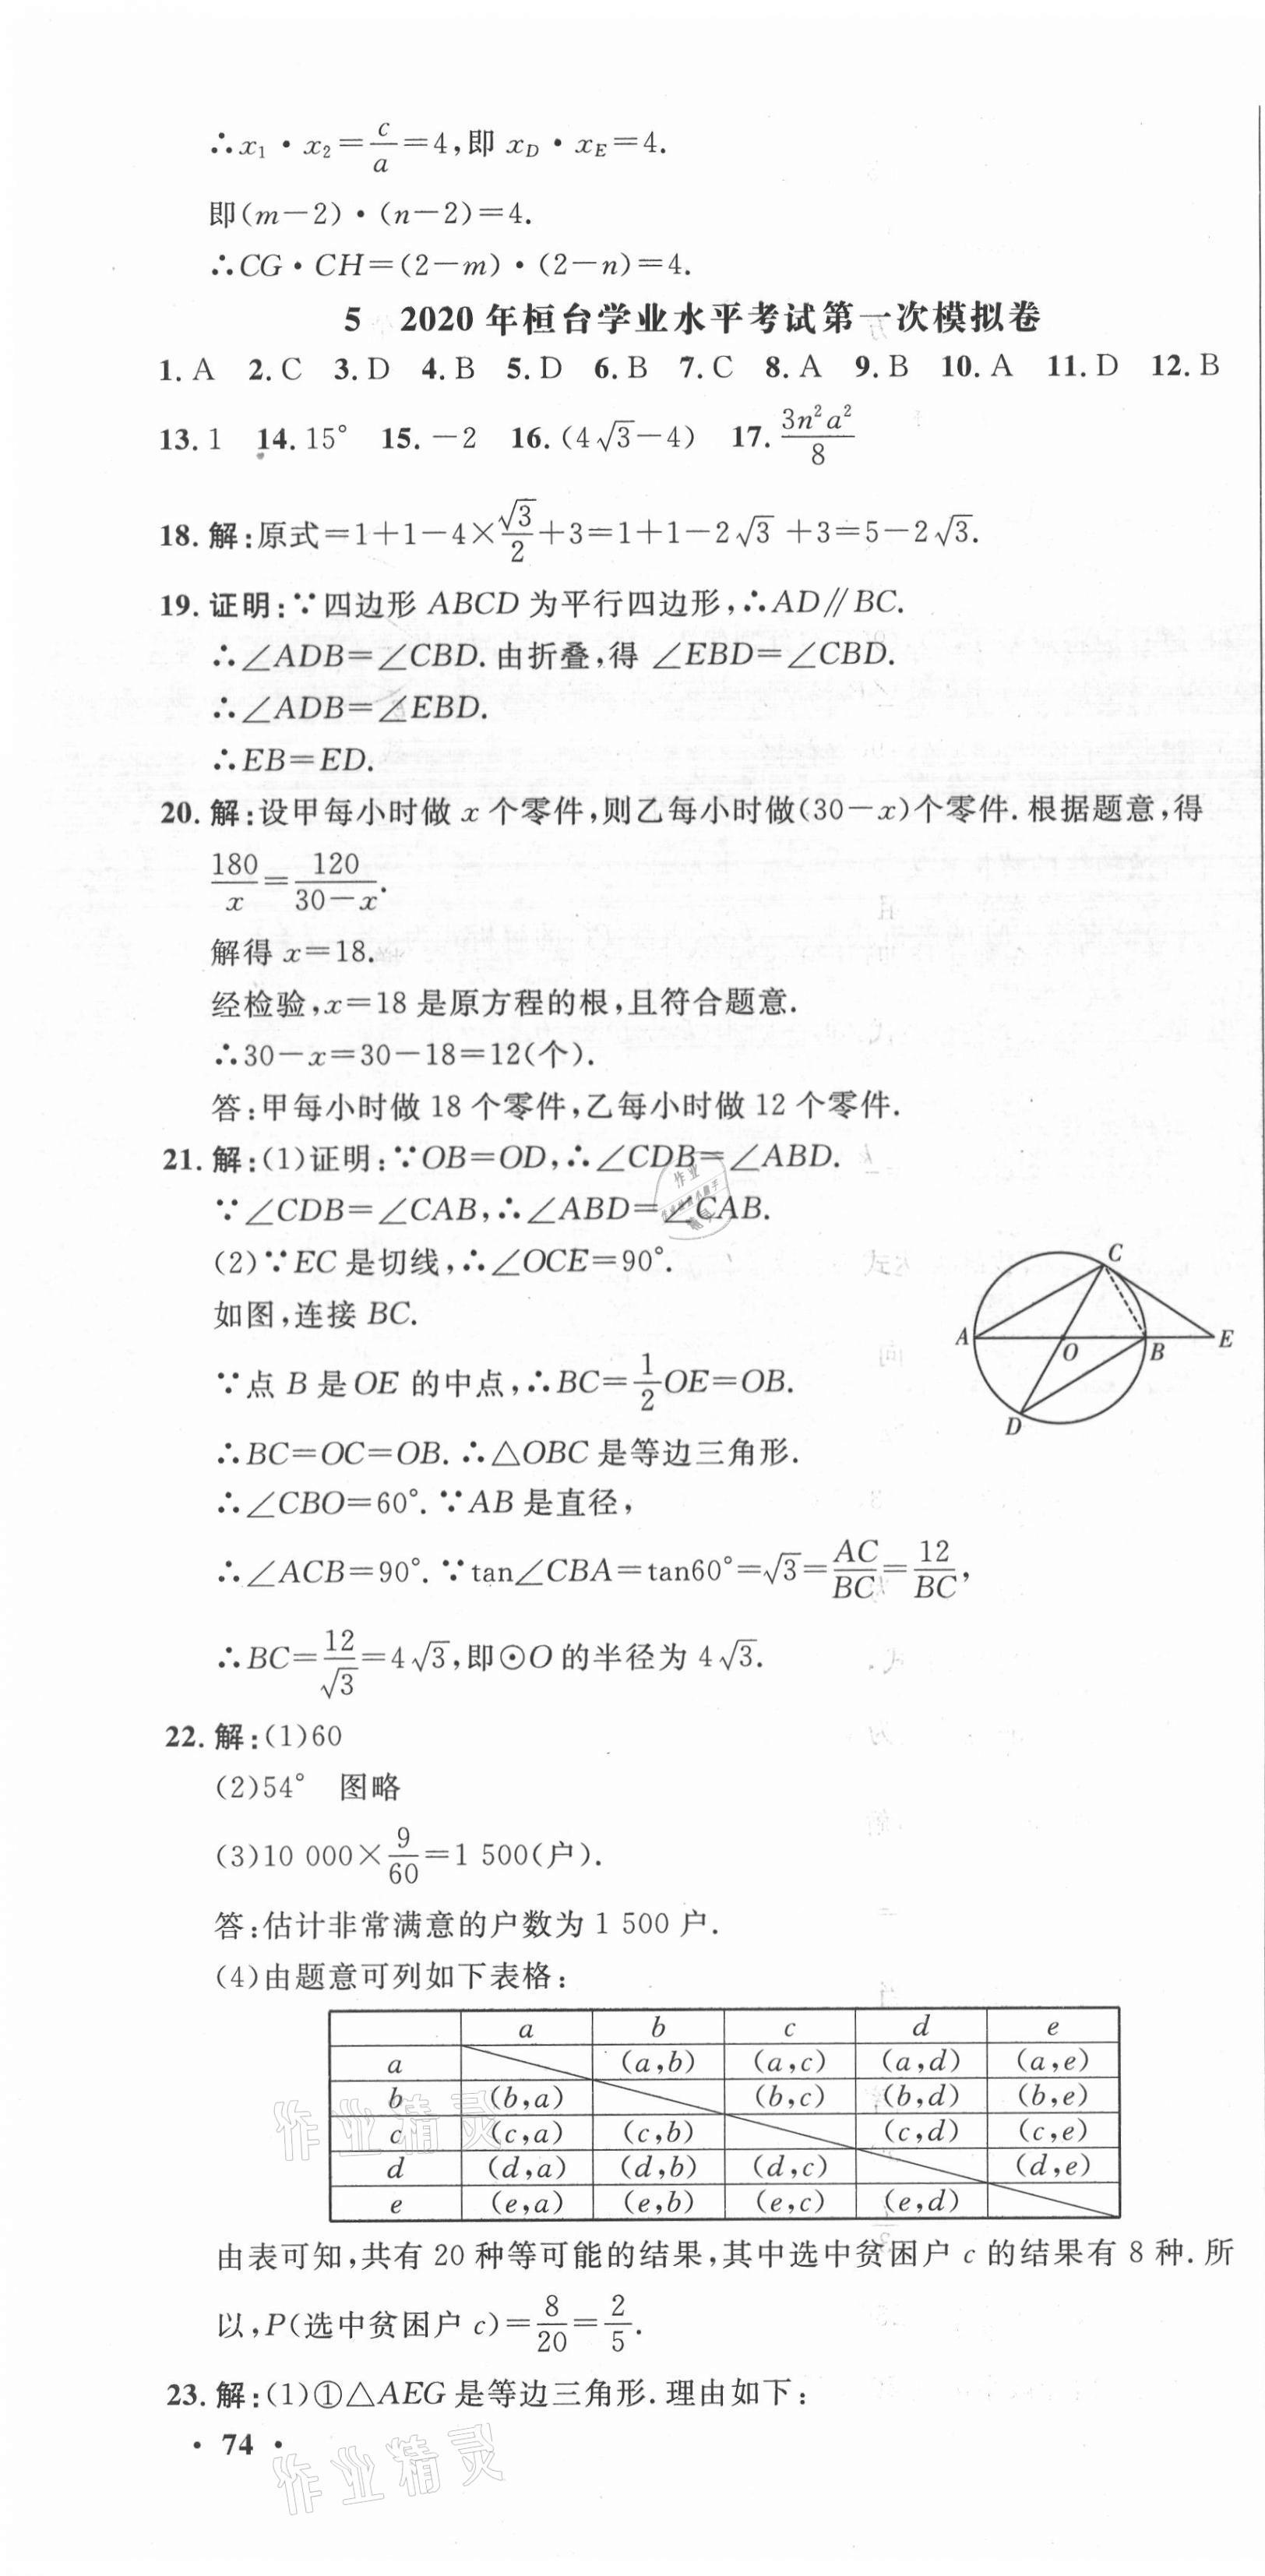 ∴x₁·x₂=c/a=4,即 x_D·x_E=4.
即(m−2)·(n−2)=4.
∴CG·CH=(2−m)·(2−n)=4.
5 2020年桓台学业水平考试第一次模拟卷
1. A 2. C 3. D 4. B 5. D 6. B 7. C 8. A 9. B 10. A 11. D 12. B
13. 1 14. 15° 15. −2 16. (4√3−4) 17. 3n²a²/8
18. 解:原式=1+1−4×√3/2+3=1+1−2√3+3=5−2√3.
19. 证明:∵四边形 ABCD 为平行四边形,∴AD∥BC.
∴∠ADB=∠CBD.由折叠,得 ∠EBD=∠CBD.
∴∠ADB=∠EBD.
∴EB=ED.
20. 解:设甲每小时做 x 个零件,则乙每小时做(30−x)个零件.根据题意,得
180/x=120/(30−x).
解得 x=18.
经检验,x=18 是原方程的根,且符合题意.
∴30−x=30−18=12(个).
答:甲每小时做 18 个零件,乙每小时做 12 个零件.
21. 解:(1)证明:∵OB=OD,∴∠CDB=∠ABD.
∵∠CDB=∠CAB,∴∠ABD=∠CAB.
(2)∵EC 是切线,∴∠OCE=90°.
如图,连接 BC.
∵点 B 是 OE 的中点,∴BC=1/2OE=OB.
∴BC=OC=OB.∴△OBC 是等边三角形.
∴∠CBO=60°.∵AB 是直径,
∴∠ACB=90°.∵tan∠CBA=tan60°=√3=AC/BC=12/BC,
∴BC=12/√3=4√3,即⊙O 的半径为 4√3.
C
A O B E
D
22. 解:(1)60
(2)54° 图略
(3)10 000×9/60=1 500(户).
答:估计非常满意的户数为 1 500 户.
(4)由题意可列如下表格:
a b c d e
a (a,b) (a,c) (a,d) (a,e)
b (b,a) (b,c) (b,d) (b,e)
c (c,a) (c,b) (c,d) (c,e)
d (d,a) (d,b) (d,c) (d,e)
e (e,a) (e,b) (e,c) (e,d)
由表可知,共有 20 种等可能的结果,其中选中贫困户 c 的结果有 8 种.所
以,P(选中贫困户 c)=8/20=2/5.
23. 解:(1)①△AEG 是等边三角形.理由如下:
· 74 ·
作业精灵
作业精灵